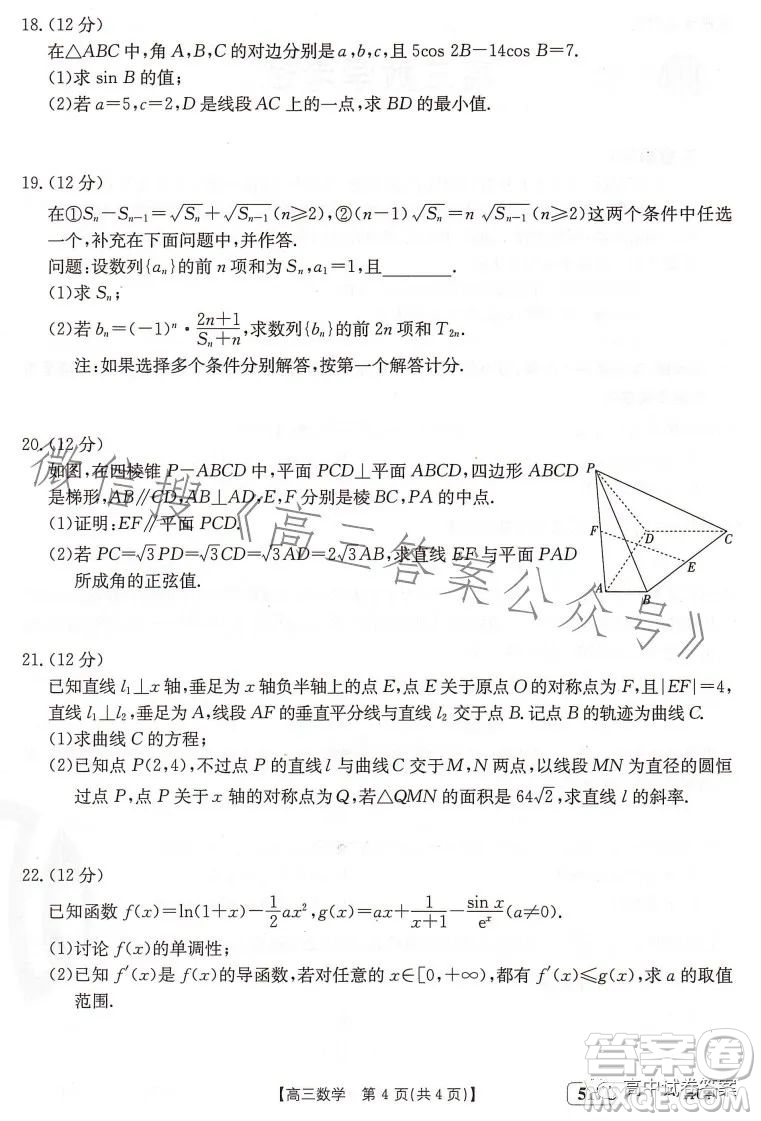 18.(12 分)
在△ABC 中,角 A,B,C 的对边分别是 a,b,c,且 5cos 2B-14cos B=7.
(1)求 sin B 的值;
(2)若 a=5,c=2,D 是线段 AC 上的一点,求 BD 的最小值.
19.(12 分)
在①Sₙ-Sₙ₋₁=√Sₙ+√Sₙ₋₁(n≥2),②(n-1)√Sₙ=n√Sₙ₋₁(n≥2)这两个条件中任选
一个,补充在下面问题中,并作答.
问题:设数列{aₙ}的前 n 项和为 Sₙ,a₁=1,且________.
(1)求 Sₙ;
(2)若 bₙ=(-1)ⁿ·(2n+1)/(Sₙ+n),求数列{bₙ}的前 2n 项和 T₂ₙ.
注:如果选择多个条件分别解答,按第一个解答计分.
20.(12 分)
如图,在四棱锥 P-ABCD 中,平面 PCD⊥平面 ABCD,四边形 ABCD
是梯形,AB∥CD,AB⊥AD,E,F 分别是棱 BC,PA 的中点.
(1)证明:EF∥平面 PCD.
(2)若 PC=√3PD=√3CD=√3AD=2√3AB,求直线 EF 与平面 PAD
所成角的正弦值.
P
F
D
C
E
A
B
微信搜《高三答案公众号》
21.(12 分)
已知直线 l₁⊥x 轴,垂足为 x 轴负半轴上的点 E,点 E 关于原点 O 的对称点为 F,且|EF|=4,
直线 l₁⊥l₂,垂足为 A,线段 AF 的垂直平分线与直线 l₂ 交于点 B.记点 B 的轨迹为曲线 C.
(1)求曲线 C 的方程;
(2)已知点 P(2,4),不过点 P 的直线 l 与曲线 C 交于 M,N 两点,以线段 MN 为直径的圆恒
过点 P,点 P 关于 x 轴的对称点为 Q,若△QMN 的面积是 64√2,求直线 l 的斜率.
22.(12 分)
已知函数 f(x)=ln(1+x)-1/2ax²,g(x)=ax+1/(x+1)-sin x/eˣ(a≠0).
(1)讨论 f(x)的单调性;
(2)已知 f′(x)是 f(x)的导函数,若对任意的 x∈[0,+∞),都有 f′(x)≤g(x),求 a 的取值
范围.
【高三数学 第 4 页(共 4 页)】
答案圈
高中试卷答案